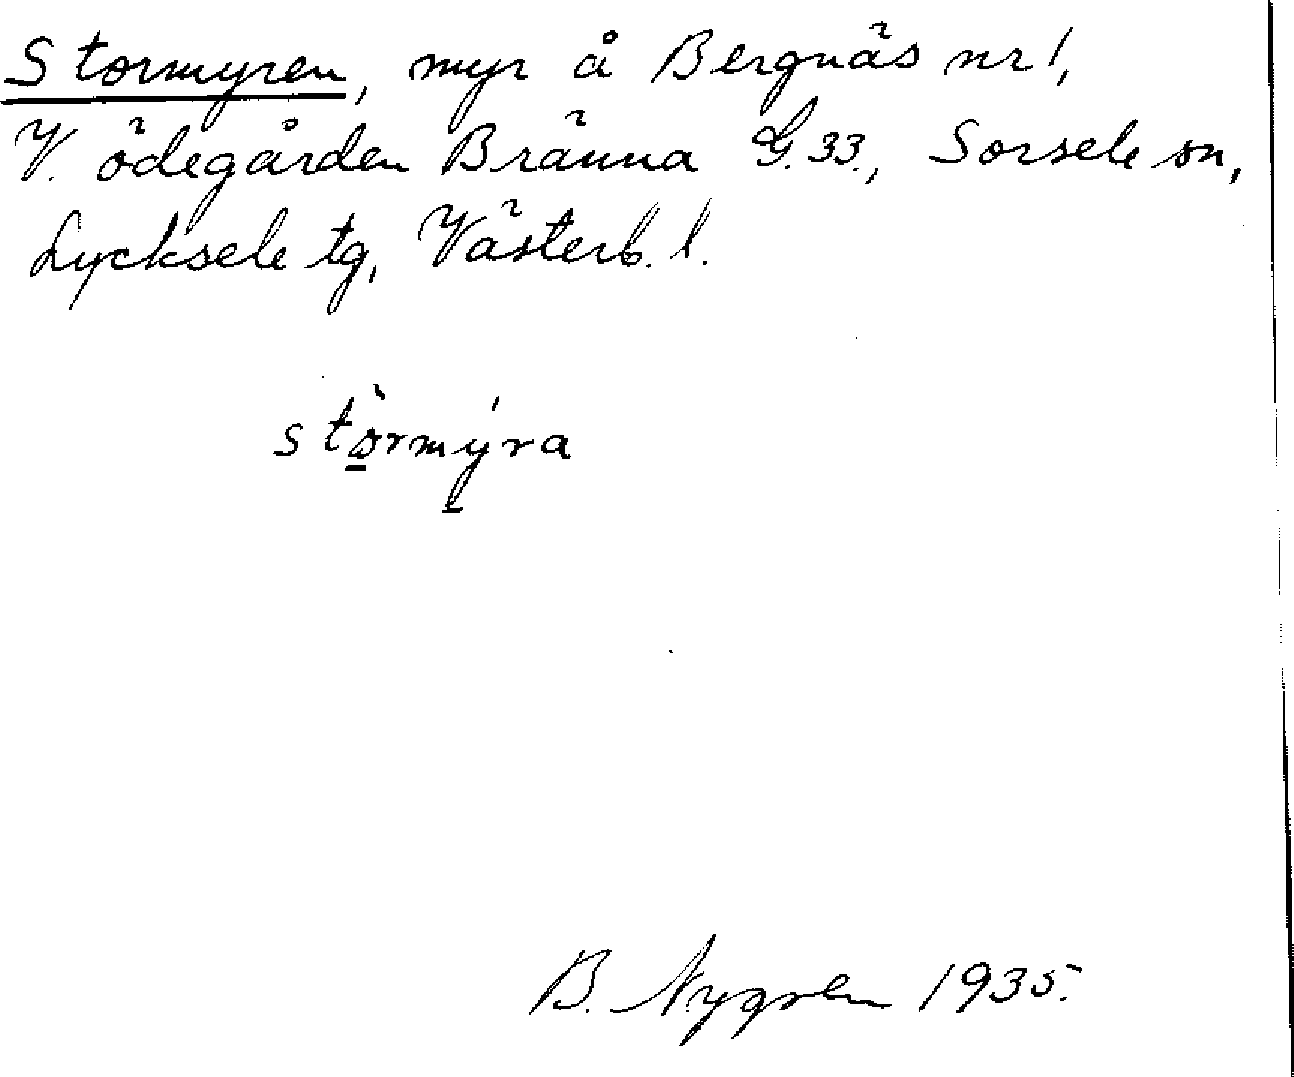 Stormyren, myr å Bergnäs nr 1,
V. ödegården Bränna G.33., Sorsele sn,
Lycksele tg, Västerb. l.
stòrmýra
B. Nygren 1935.